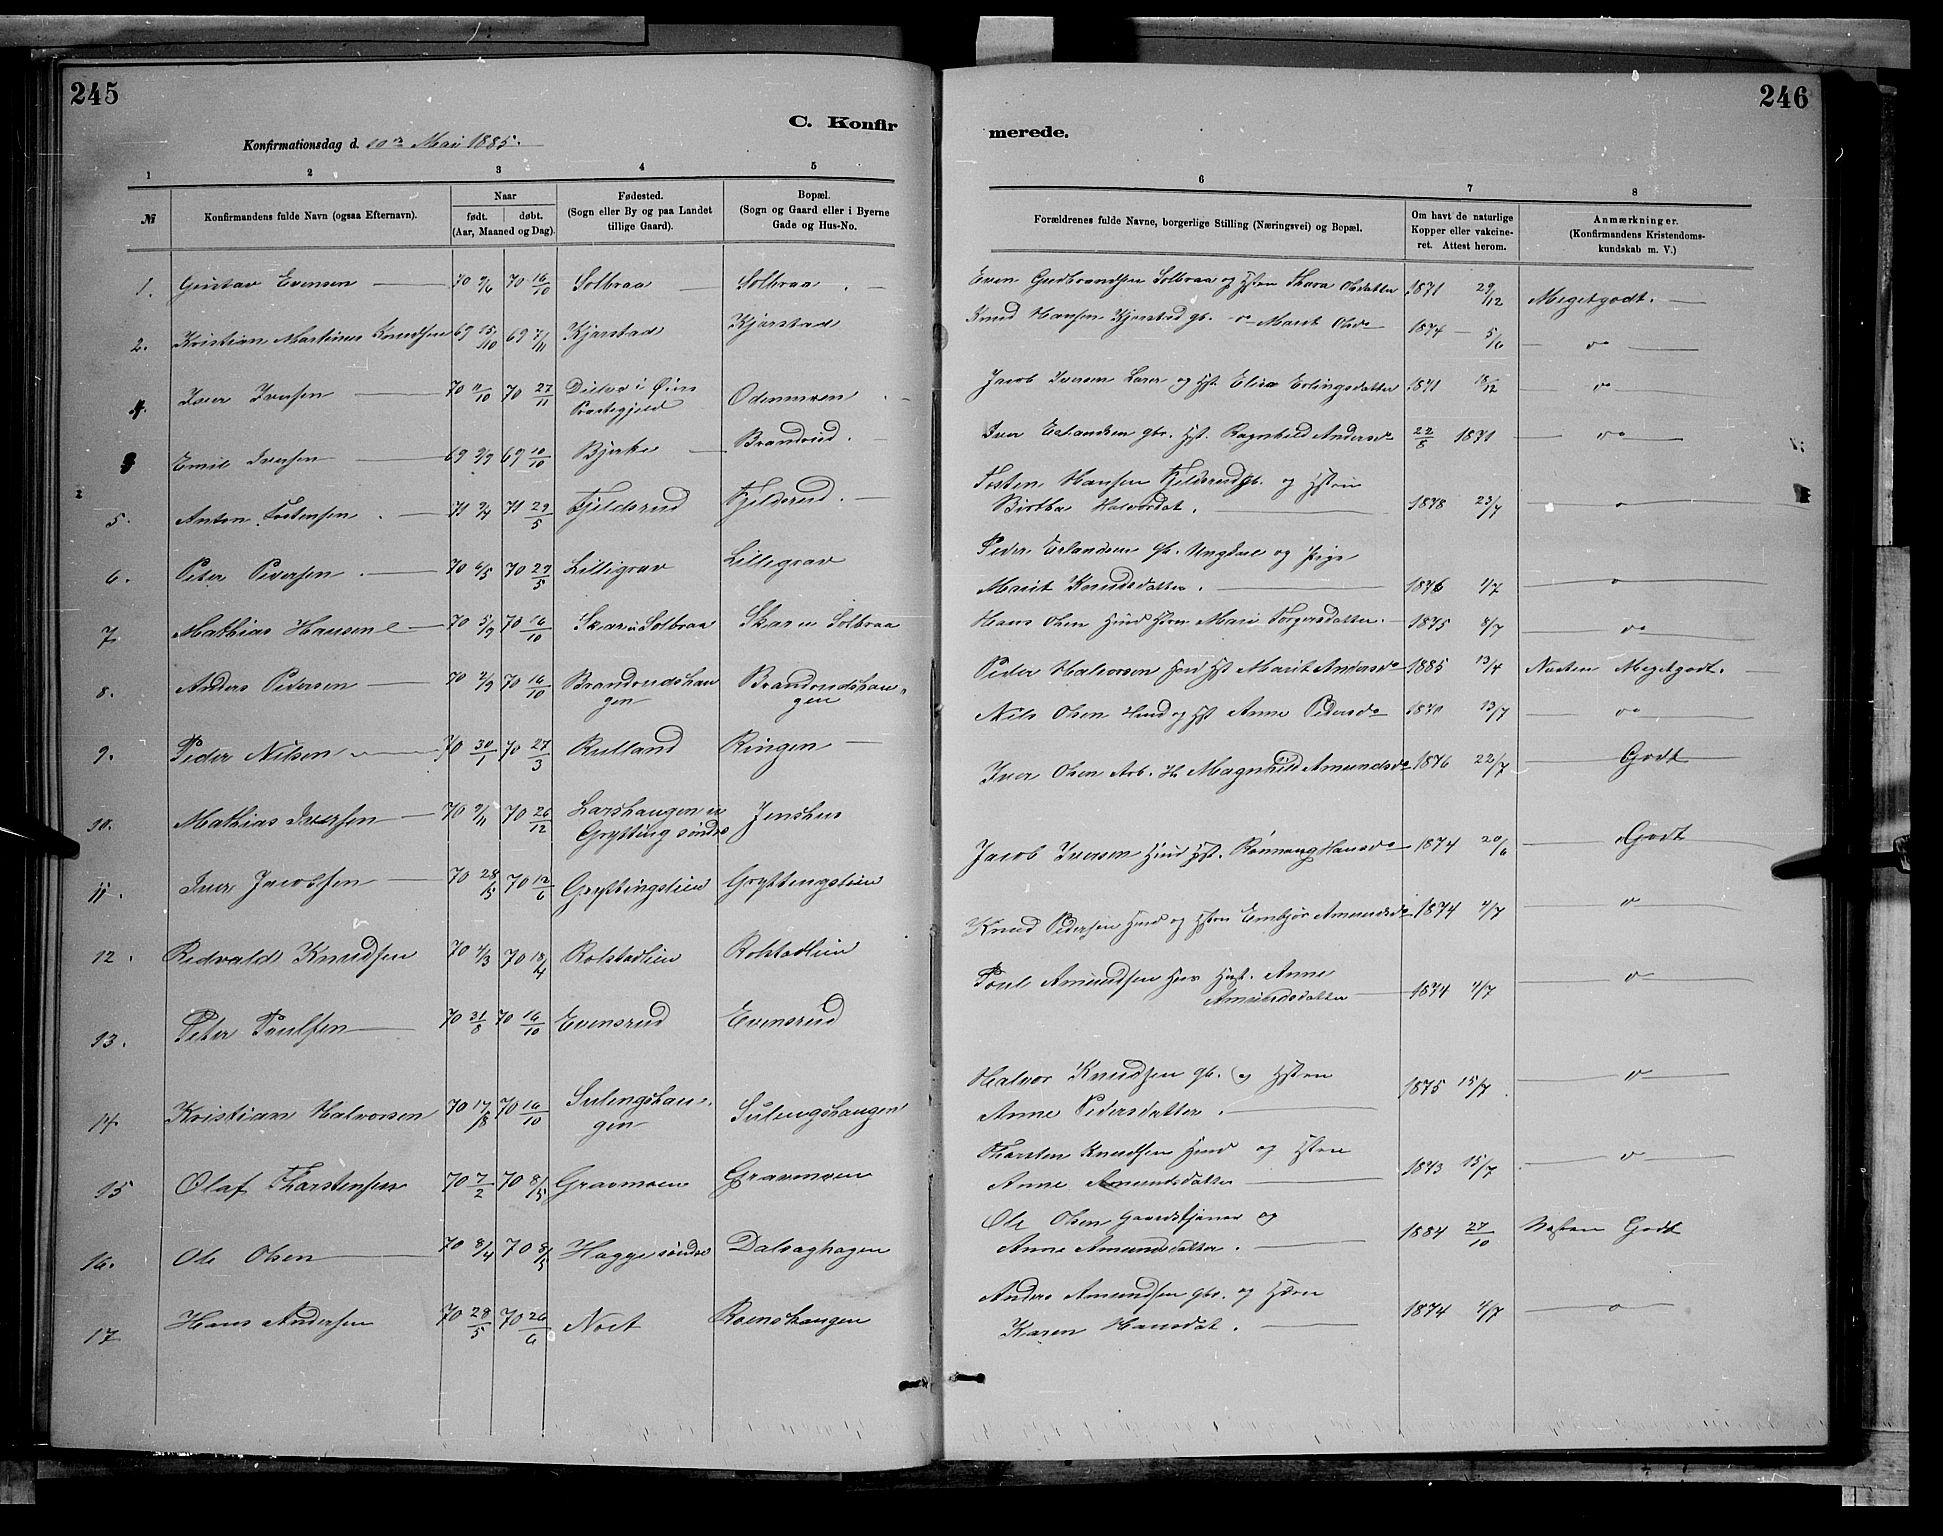 245
C. Konfir
Konfirmationsdag d. 10de Mai 1885.
1 2 3 4 5
№ Konfirmandens fulde Navn (ogsaa Efternavn). Naar født. døbt. (Aar, Maaned og Dag). Fødested. (Sogn eller By og paa Landet tillige Gaard). Bopæl. (Sogn og Gaard eller i Byerne Gade og Hus-No.
1. Gustav Evensen 70 9/6 70 16/10 Solbraa Solbraa
2. Kristian Martinus Knudsen 69 15/10 69 7/11 Kjørstad Kjørstad
4. Iver Iversen 70 11/10 70 27/11 Odenmoen
Præstegjeld
Emil Iversen 69 2/9 69 10/10 Bjerke Brandrud
5. Anton Tostensen 71 2/4 71 29/5 Fjeldsrud Fjeldsrud
6. Peter Pedersen 70 6/5 70 29/5 Lillegrav Lillegrav
7. Mathias Hansen 70 5/9 70 16/10 Skar u Solbraa Skar u Solbraa
8. Anders Pedersen 70 2/9 70 16/10 Brandrudshau Brandrudshau-
gen gen
9. Peder Nilsen 70 30/1 70 27/3 Rulland Ringen
10. Mathias Iversen 70 9/11 70 26/12 Larshaugen u Jenshus
Grytting søndre
11. Iver Jacobsen 70 28/5 70 12/6 Gryttingslien Gryttingslien
12. Redvald Knudsen 70 4/3 70 18/4 Rolstadlien Rolstadlien
13. Peter Poulsen 70 31/8 70 16/10 Evensrud Evensrud
14. Kristian Halvorsen 70 17/8 70 16/10 Sulengshau- Sulengshaugen
gen
15 Olaf Thorstensen 70 7/2 70 8/5 Gravmoen Gravmoen
16. Ole Olsen 70 8/4 70 8/5 Hagge søndre Dalsaghagen
17 Hans Andersen 70 28/5 70 26/6 Noet Roenshaugen
246
merede.
6 7 8
Forældrenes fulde Navne, borgerlige Stilling (Næringsvei) og Bopæl. Om havt de naturlige Kopper eller vakcineret. Attest herom. Anmærkninger. (Konfirmandens Kristendomskundskab m. V.)
Even Gudbrandsen Solbraa og Hstru Thora Olsdatter 1871 29/12 Megetgodt.
Knud Hansen Kjørstad gb. do Marit Olsdr 1874 5/6 do
Jacob Iversen Lærer og Hst. Elise Erlingsdatter 1871 18/12 do
Iver Erlandsen gbr. Hst. Ragnhild Andersdr 22/8 1871 do
Tosten Hansen Fjeldsrud gb. og Hstru
Birthe Halvorsdat. 1878 23/7
Peder Erlandsen gb. Ungkarl og Pige
Marit Knudsdatter. 1876 4/7
Hans Olsen Hmd Hstru Mari Torgersdatter 1875 8/7 do
Peder Halvorsen Hmd Hst Marit Andersdr 1885 13/4 Næsten Megetgodt.
Nils Olsen Hmd og Hst Anne Pedersdr 1871 13/7 do
Iver Olsen Arb. Hs Magnhild Amundsdr 1876 22/7 Godt
Jacob Iversen Hmd Hst. Rønnaug Hansdr 1874 20/6 Godt
Knud Pedersen Hmd og Hstru Embjør Amundsdr 1874 4/7 do
Poul Amundsen Hst. Anne
Amundsdatter 1874 4/7 do
Halvor Knudsen gb. og Hstru
Anne Pedersdatter. 1875 15/7 do
Thorsten Knudsen Hmd og Hstru
Anne Amundsdatter 1873 15/7 do
Ole Olsen Gaardstjener og
Anne Amundsdatter. 1884 27/10 Næsten Godt
Anders Amundsen gbr. og Hstru
Karen Hansdat. 1874 4/7